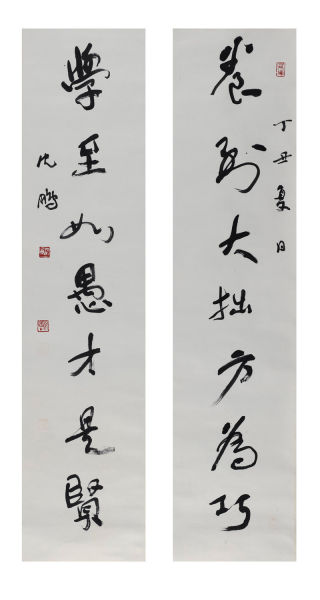 養到大拙方為巧
丁丑夏日
學至如愚才是賢
沈鵬